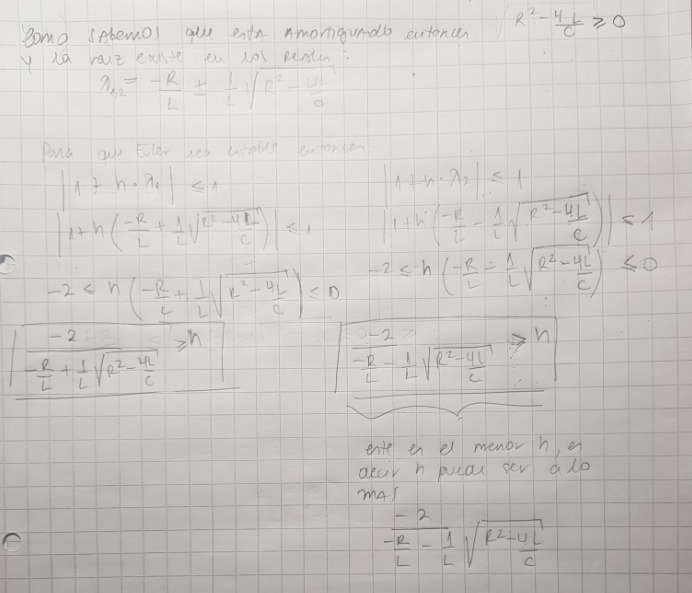 Como sabemos que esta Amortiguado entonces R² - 4L/C ≥ 0
y la raiz existe en los reales:
λ1/2 = -R/L ± 1/L √(R² - 4L/C)
Para que Euler sea estable entonces
|1 + h · λ1| ≤ 1
|1 + h · λ2| ≤ 1
|1 + h (-R/L + 1/L √(R² - 4L/C))| ≤ 1
|1 + h (-R/L - 1/L √(R² - 4L/C))| ≤ 1
-2 ≤ h (-R/L + 1/L √(R² - 4L/C)) ≤ 0
-2 ≤ h (-R/L - 1/L √(R² - 4L/C)) ≤ 0
-2 / (-R/L + 1/L √(R² - 4L/C)) ≥ h
-2 / (-R/L - 1/L √(R² - 4L/C)) ≥ h
este es el menor h, es
decir h puede ser a lo
mas
-2 / (-R/L - 1/L √(R² - 4L/C))